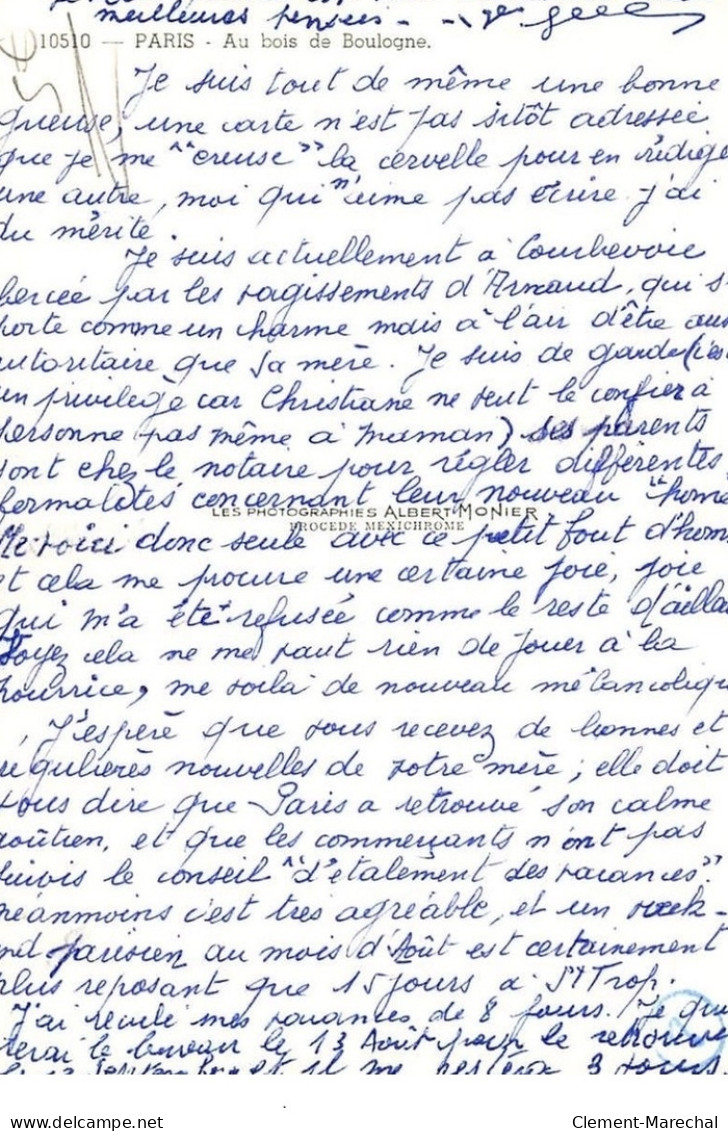 meilleures pensées -
10510 — PARIS - Au bois de Boulogne.
Je suis tout de même une bonne
gueuse, une carte n'est pas sitôt adressée
que je me "creuse" la cervelle pour en rédige
une autre, moi qui n'aime pas écrire j'ai
du mérite
Je suis actuellement à Courbevoie
bercée par les vagissements d'Arnaud, qui s
porte comme un charme mais à l'air d'être aus
autoritaire que sa mère. Je suis de garde (c'es
un privilège car Christiane ne veut le confier à
personne pas même à maman) ses parents
sont chez le notaire pour régler différentes
formalités concernant leur nouveau "home
LES PHOTOGRAPHIES ALBERT MONIER
PROCEDE MEXICHROME
Me voici donc seule avec ce petit bout d'hom
et cela me procure une certaine joie, joie
qui m'a été refusée comme le reste d'ailla
Voyez cela ne me vaut rien de jouer à la
nourrice, me voilà de nouveau mélancoliqu
J'espère que vous recevez de bonnes et
régulières nouvelles de votre mère ; elle doit
vous dire que Paris a retrouvé son calme
aoûtien, et que les commerçants n'ont pas
suivis le conseil "d'étalement des vacances".
néanmoins c'est très agréable, et un week-
end parisien au mois d'Août est certainement
plus reposant que 15 jours à St Trop.
J'ai reculé mes vacances de 8 jours. Je qui
terai le bureau le 13 Août pour le retrouve
le 12 Septembre et il me restera 3 jours.
Clement-Marechal